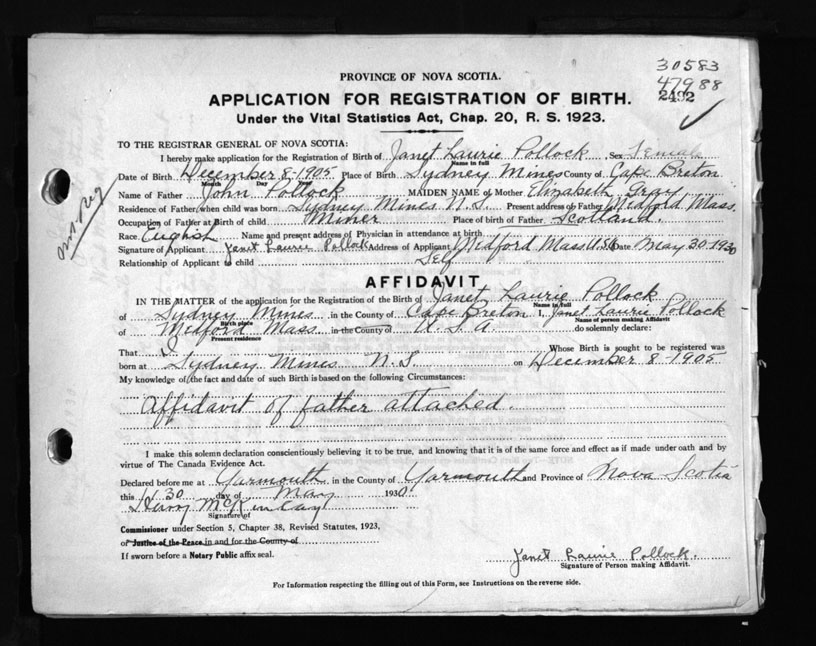 30583
47988
2492
PROVINCE OF NOVA SCOTIA.
APPLICATION FOR REGISTRATION OF BIRTH.
Under the Vital Statistics Act, Chap. 20, R. S. 1923.
TO THE REGISTRAR GENERAL OF NOVA SCOTIA:
I hereby make application for the Registration of Birth of Janet Laurie Pollock Sex Female
Name in full
Date of Birth December 8-1905 Place of Birth Sydney Mines County of Cape Breton
Month Day
Name of Father John Pollock MAIDEN NAME of Mother Elizabeth Gray
Residence of Father when child was born Sydney Mines N.S. Present address of Father Medford Mass.
Occupation of Father at Birth of child Miner Place of birth of Father Scotland.
Race English Name and present address of Physician in attendance at birth
Signature of Applicant Janet Laurie Pollock Address of Applicant Medford Mass U.S.A. Date May 30-1930
Relationship of Applicant to child Self
AFFIDAVIT
IN THE MATTER of the application for the Registration of the Birth of Janet Laurie Pollock
Name in full
of Sydney Mines in the County of Cape Breton I, Janet Laurie Pollock
Birth place Name of person making Affidavit
of Medford Mass in the County of U.S.A. do solemnly declare:
Present residence
That I Whose Birth is sought to be registered was
born at Sydney Mines N.S. on December 8-1905
My knowledge of the fact and date of such Birth is based on the following Circumstances:
Affidavit of father attached.
I make this solemn declaration conscientiously believing it to be true, and knowing that it is of the same force and effect as if made under oath and by
virtue of The Canada Evidence Act.
Declared before me at Yarmouth in the County of Yarmouth and Province of Nova Scotia
this 30 day of May 1930
Harry McKinlay
Signature of
Commissioner under Section 5, Chapter 38, Revised Statutes, 1923,
or Justice of the Peace in and for the County of
If sworn before a Notary Public affix seal.
Janet Laurie Pollock.
Signature of Person making Affidavit.
For Information respecting the filling out of this Form, see Instructions on the reverse side.